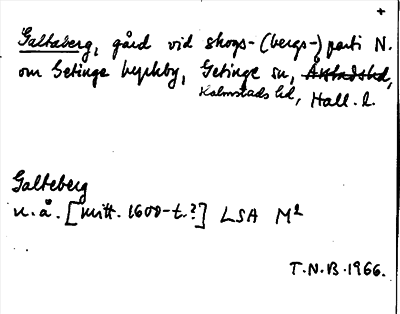 +
Galtaberg, gård vid skogs-(bergs-)parti N.
om Getinge kyrkby, Getinge sn, Årstads hd,
Halmstads hd, Hall. l.
Galteberg
u.å. [mitt. 1600-t.?] LSA M²
T.N.B. 1966.